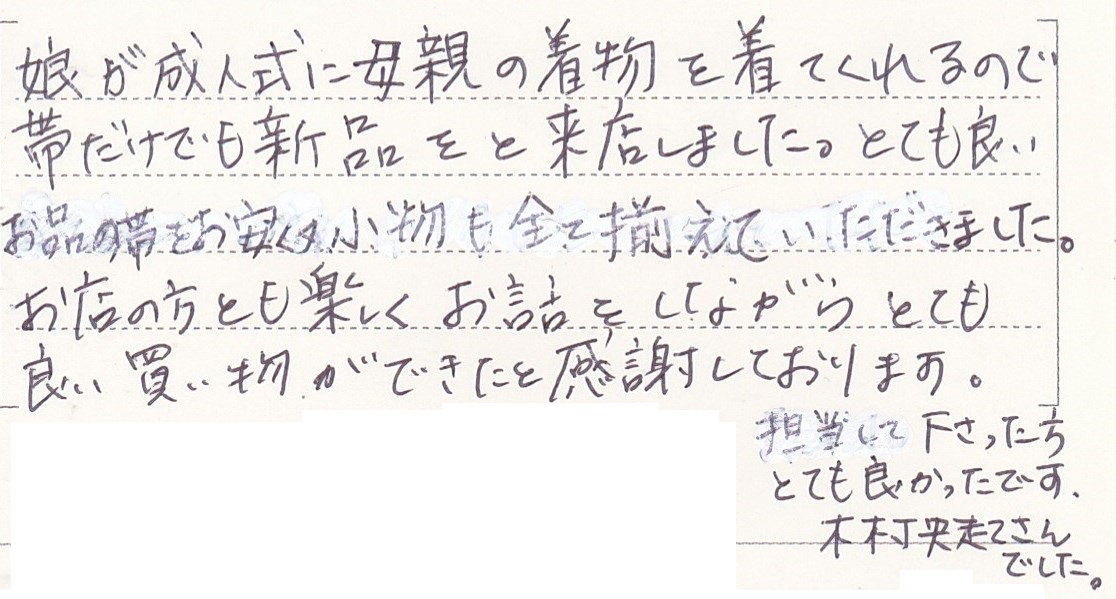 娘が成人式に母親の着物を着てくれるので
帯だけでも新品をと来店しました。とても良い
お品の帯をお安く小物も全て揃えていただきました。
お店の方とも楽しくお話をしながらとても
良い買い物ができたと感謝しております。
担当して下さった方
とても良かったです.
木村さん
でした。